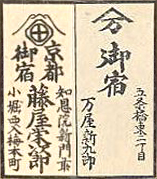 万
御宿
五条橋東二丁目
万屋新九郎
京都
御宿
知恩院新門前
藤屋栄郎
小堀中入梅本町